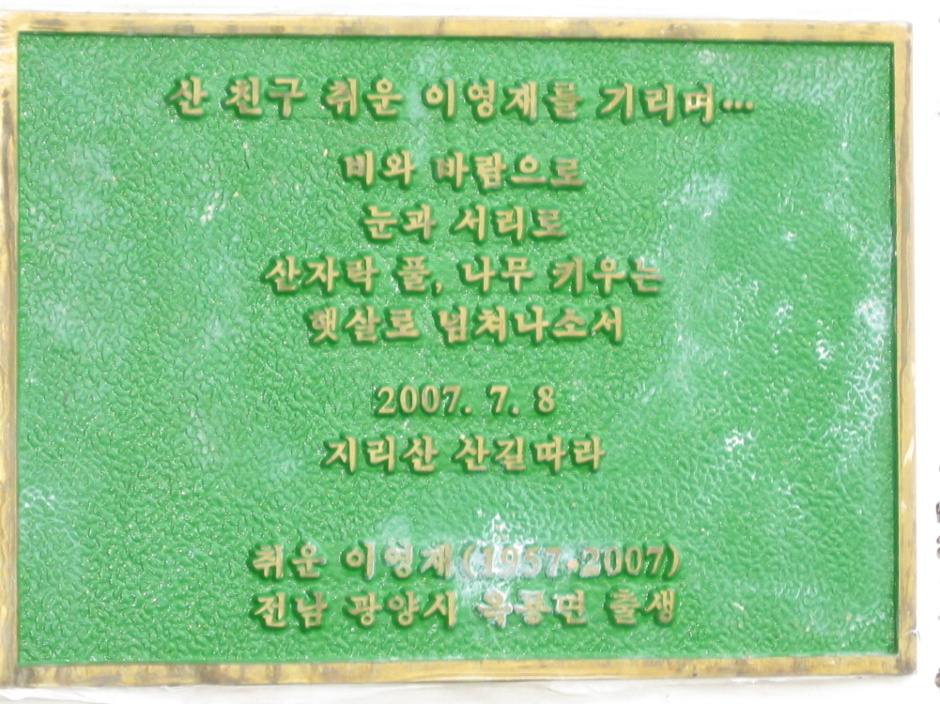 산 친구 취운 이영재를 기리며...
비와 바람으로
눈과 서리로
산자락 풀, 나무 키우는
햇살로 넘쳐나소서
2007. 7. 8
지리산 산길따라
취운 이영재(1957·2007)
전남 광양시 옥룡면 출생